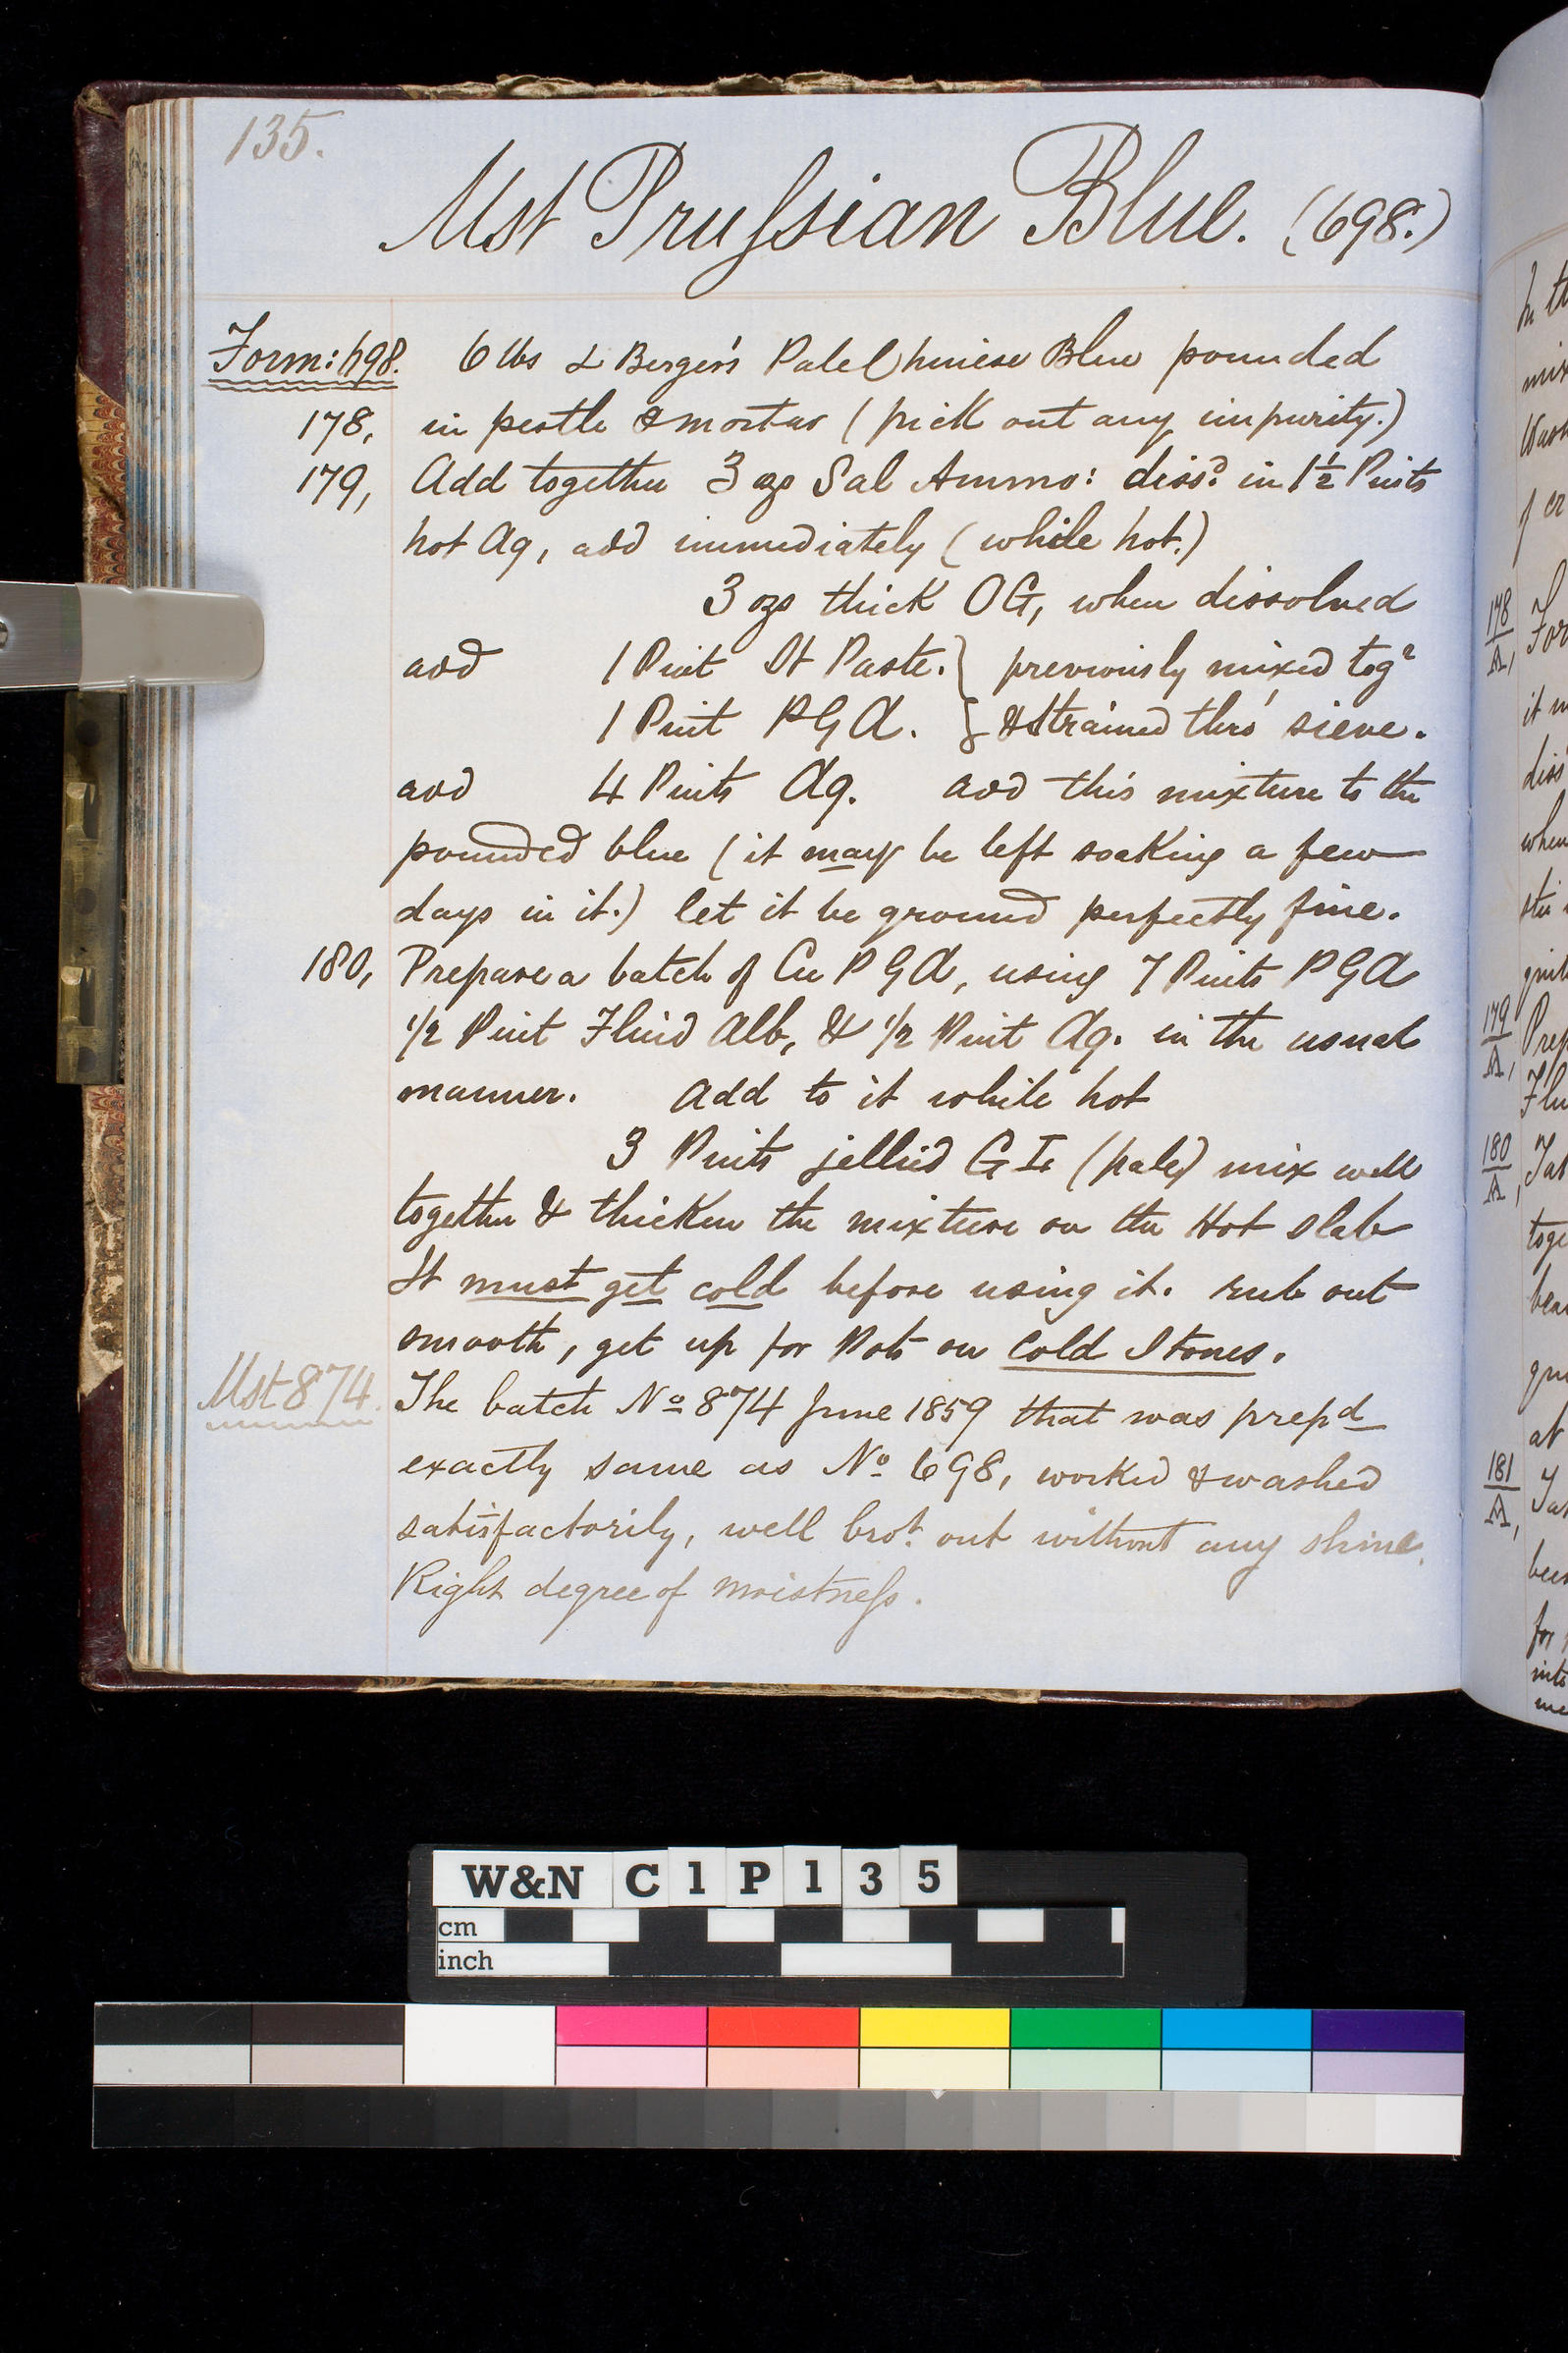 135.
Mst Prussian Blue. (698.)
Form: 698. 6 lbs L Berger's Pale Chinese Blue pounded
178, in pestle & mortar (pick out any impurity.)
179, Add together 3 ozs Sal Ammo: dissd. in 1½ Pints
hot Aq, add immediately (while hot.)
3 ozs thick OG, when dissolved
add 1 Pint St Paste. } previously mixed togr
1 Pint PGA. } & strained thro' sieve.
add 4 Pints Aq. add this mixture to the
pounded blue (it may be left soaking a few
days in it.) let it be ground perfectly fine.
180, Prepare a batch of Cu PGA, using 7 Pints PGA
1/2 Pint Fluid Alb, & 1/2 Pint Aq. in the usual
manner. Add to it while hot
3 Pints jellied G Is (pale) mix well
together & thicken the mixture on the Hot slab
It must get cold before using it. rub out
smooth, get up for Pots on Cold Stones.
Mst 874. The batch No 874 June 1859 that was prepd
exactly same as No. 698, worked & washed
satisfactorily, well brot. out without any shine.
Right degree of moistness.
In th
mix
Wash
178
A,
For
it
diss
when
179
A,
Prep
Flu
180
A,
toge
at
181
A,
for
into
W&N C1P135
cm
inch